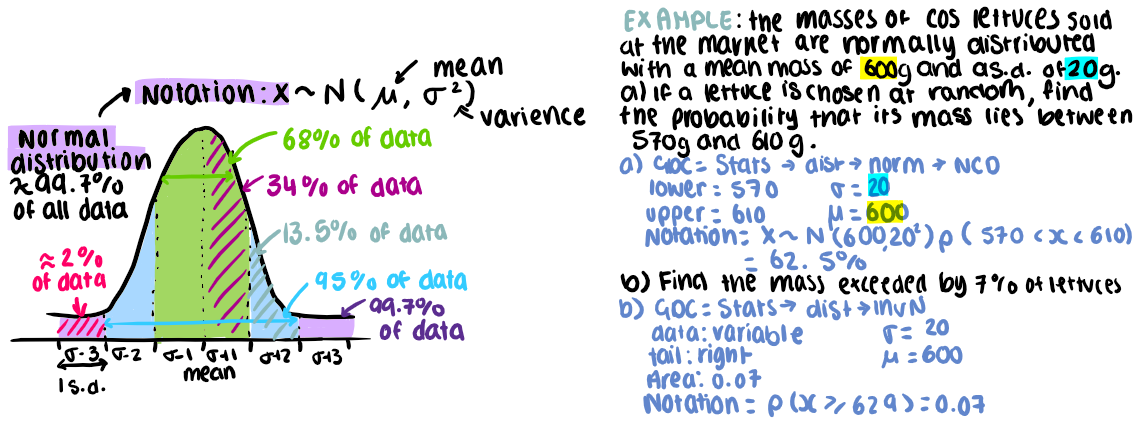 Notation: X ~ N(μ, σ²)
mean
varience
Normal
distribution
≈ 99.7%
of all data
68% of data
34% of data
13.5% of data
95% of data
99.7%
of data
≈ 2%
of data
σ-3 σ-2 σ-1 σ+1 σ+2 σ+3
mean
1 s.d.
EXAMPLE: the masses of cos lettuces sold
at the market are normally distributed
with a mean mass of 600g and a s.d. of 20g.
a) If a lettuce is chosen at random, find
the probability that its mass lies between
570g and 610g.
a) GDC = Stats → dist → norm → NCD
lower = 570 σ = 20
upper = 610 μ = 600
Notation = X ~ N (600, 20²) p ( 570 < x < 610)
= 62.5%
b) Find the mass exceeded by 7% of lettuces
b) GDC = Stats → dist → InvN
data: variable σ = 20
tail: right μ = 600
Area: 0.07
Notation = p (x ≥ 629) = 0.07